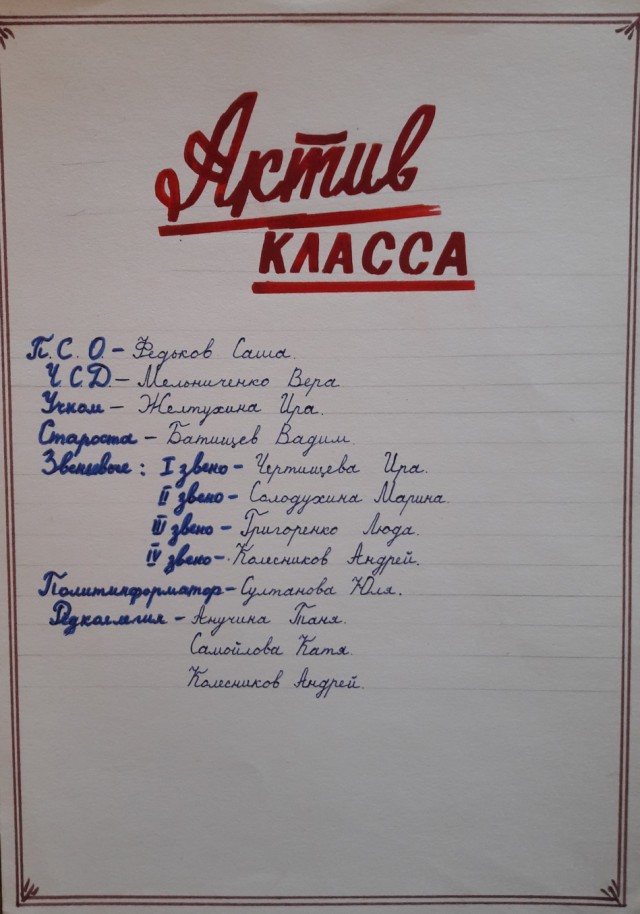 Актив
КЛАССА
П. С. О. – Федьков Саша.
Ч. С. Д. – Мельниченко Вера
Учком – Желтухина Ира.
Староста – Батищев Вадим.
Звеньевые: I звено – Чертищева Ира.
II звено – Солодухина Марина.
III звено – Григоренко Люда.
IV звено – Колесников Андрей.
Политинформатор – Султанова Юля.
Редколлегия – Анучина Таня.
Самойлова Катя.
Колесников Андрей.